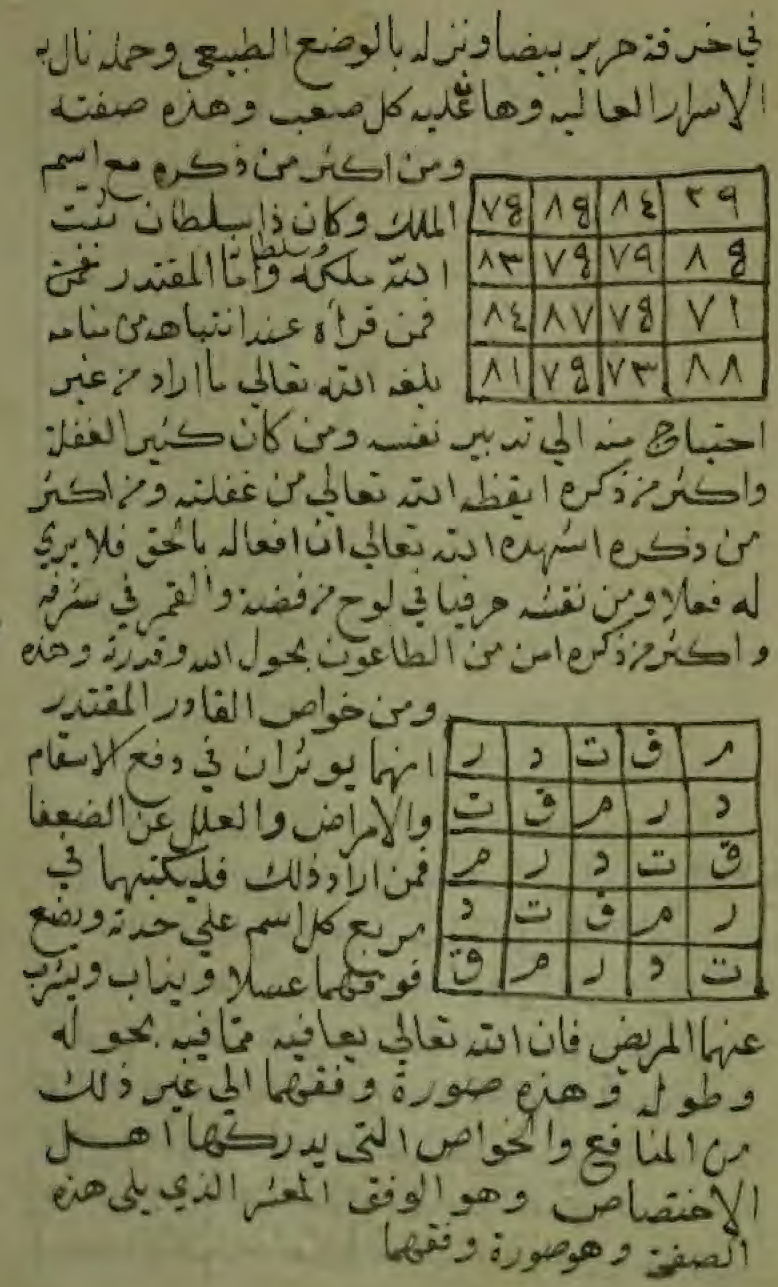 في خرقة حرير بيضا ونزله بالوضع الطبيعي وحمله نال به
الاسرار العاليه وهابه كل صعب وهذه صفته
ومن اكثر من ذكره مع اسم
الملك وكان ذا سلطان ثبت
الله ملكه وسلطا واما المقتدر
فمن قرأه عند انتباهه من منامه
بلغه الله تعالي ما اراد من غير
٣٩ ٨٤ ٨٤ ٧٤
٨٤ ٧٩ ٧٤ ٨٣
٧١ ٧٤ ٨٧ ٨٤
٨٨ ٧٣ ٧٤ ٨١
احتياج منه الي تدبير نفسه ومن كان كثير الغفلة
واكثر من ذكره ايقظه الله تعالي من غفلته ومن اكثر
من ذكره اشهده الله تعالي ان افعاله بالحق فلا يري
له فعلا ومن نقشه حرفيا في لوح من فضة والقمر في شرفه
واكثر من ذكره امن من الطاعون بحول الله وقدرته وهذه
ومن خواص القادر المقتدر
انهما يوثران في دفع الاسقام
والامراض والعلل عن الضعفا
فمن اراد ذلك فليكتبهما في
مربع كل اسم علي حدته ويضع
فوقهما عسلا ويذاب ويشرب
م ق ت د ر
د ر م ق ت
ق ت د ر م
ر م ق ت د
ت د ر م ق
عنهما المريض فان الله تعالي يعافيه مما فيه بحوله
وطوله وهذه صورة وفقهما الي غير ذلك
من المنافع والخواص التي يدركها اهل
الاختصاص وهو الوفق المعشر الذي يلي هذه
الصفة وهو صورة وفقهما